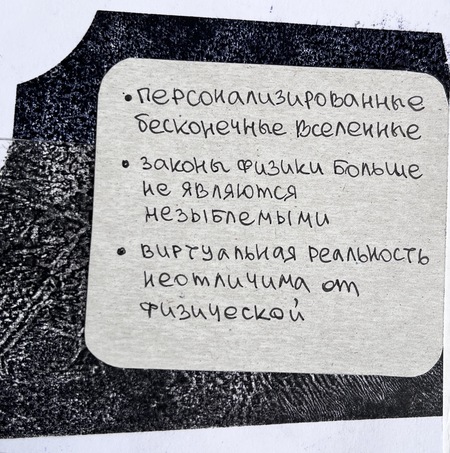 • персонализированные
бесконечные вселенные
• законы физики больше
не являются
незыблемыми
• виртуальная реальность
неотличима от
физической